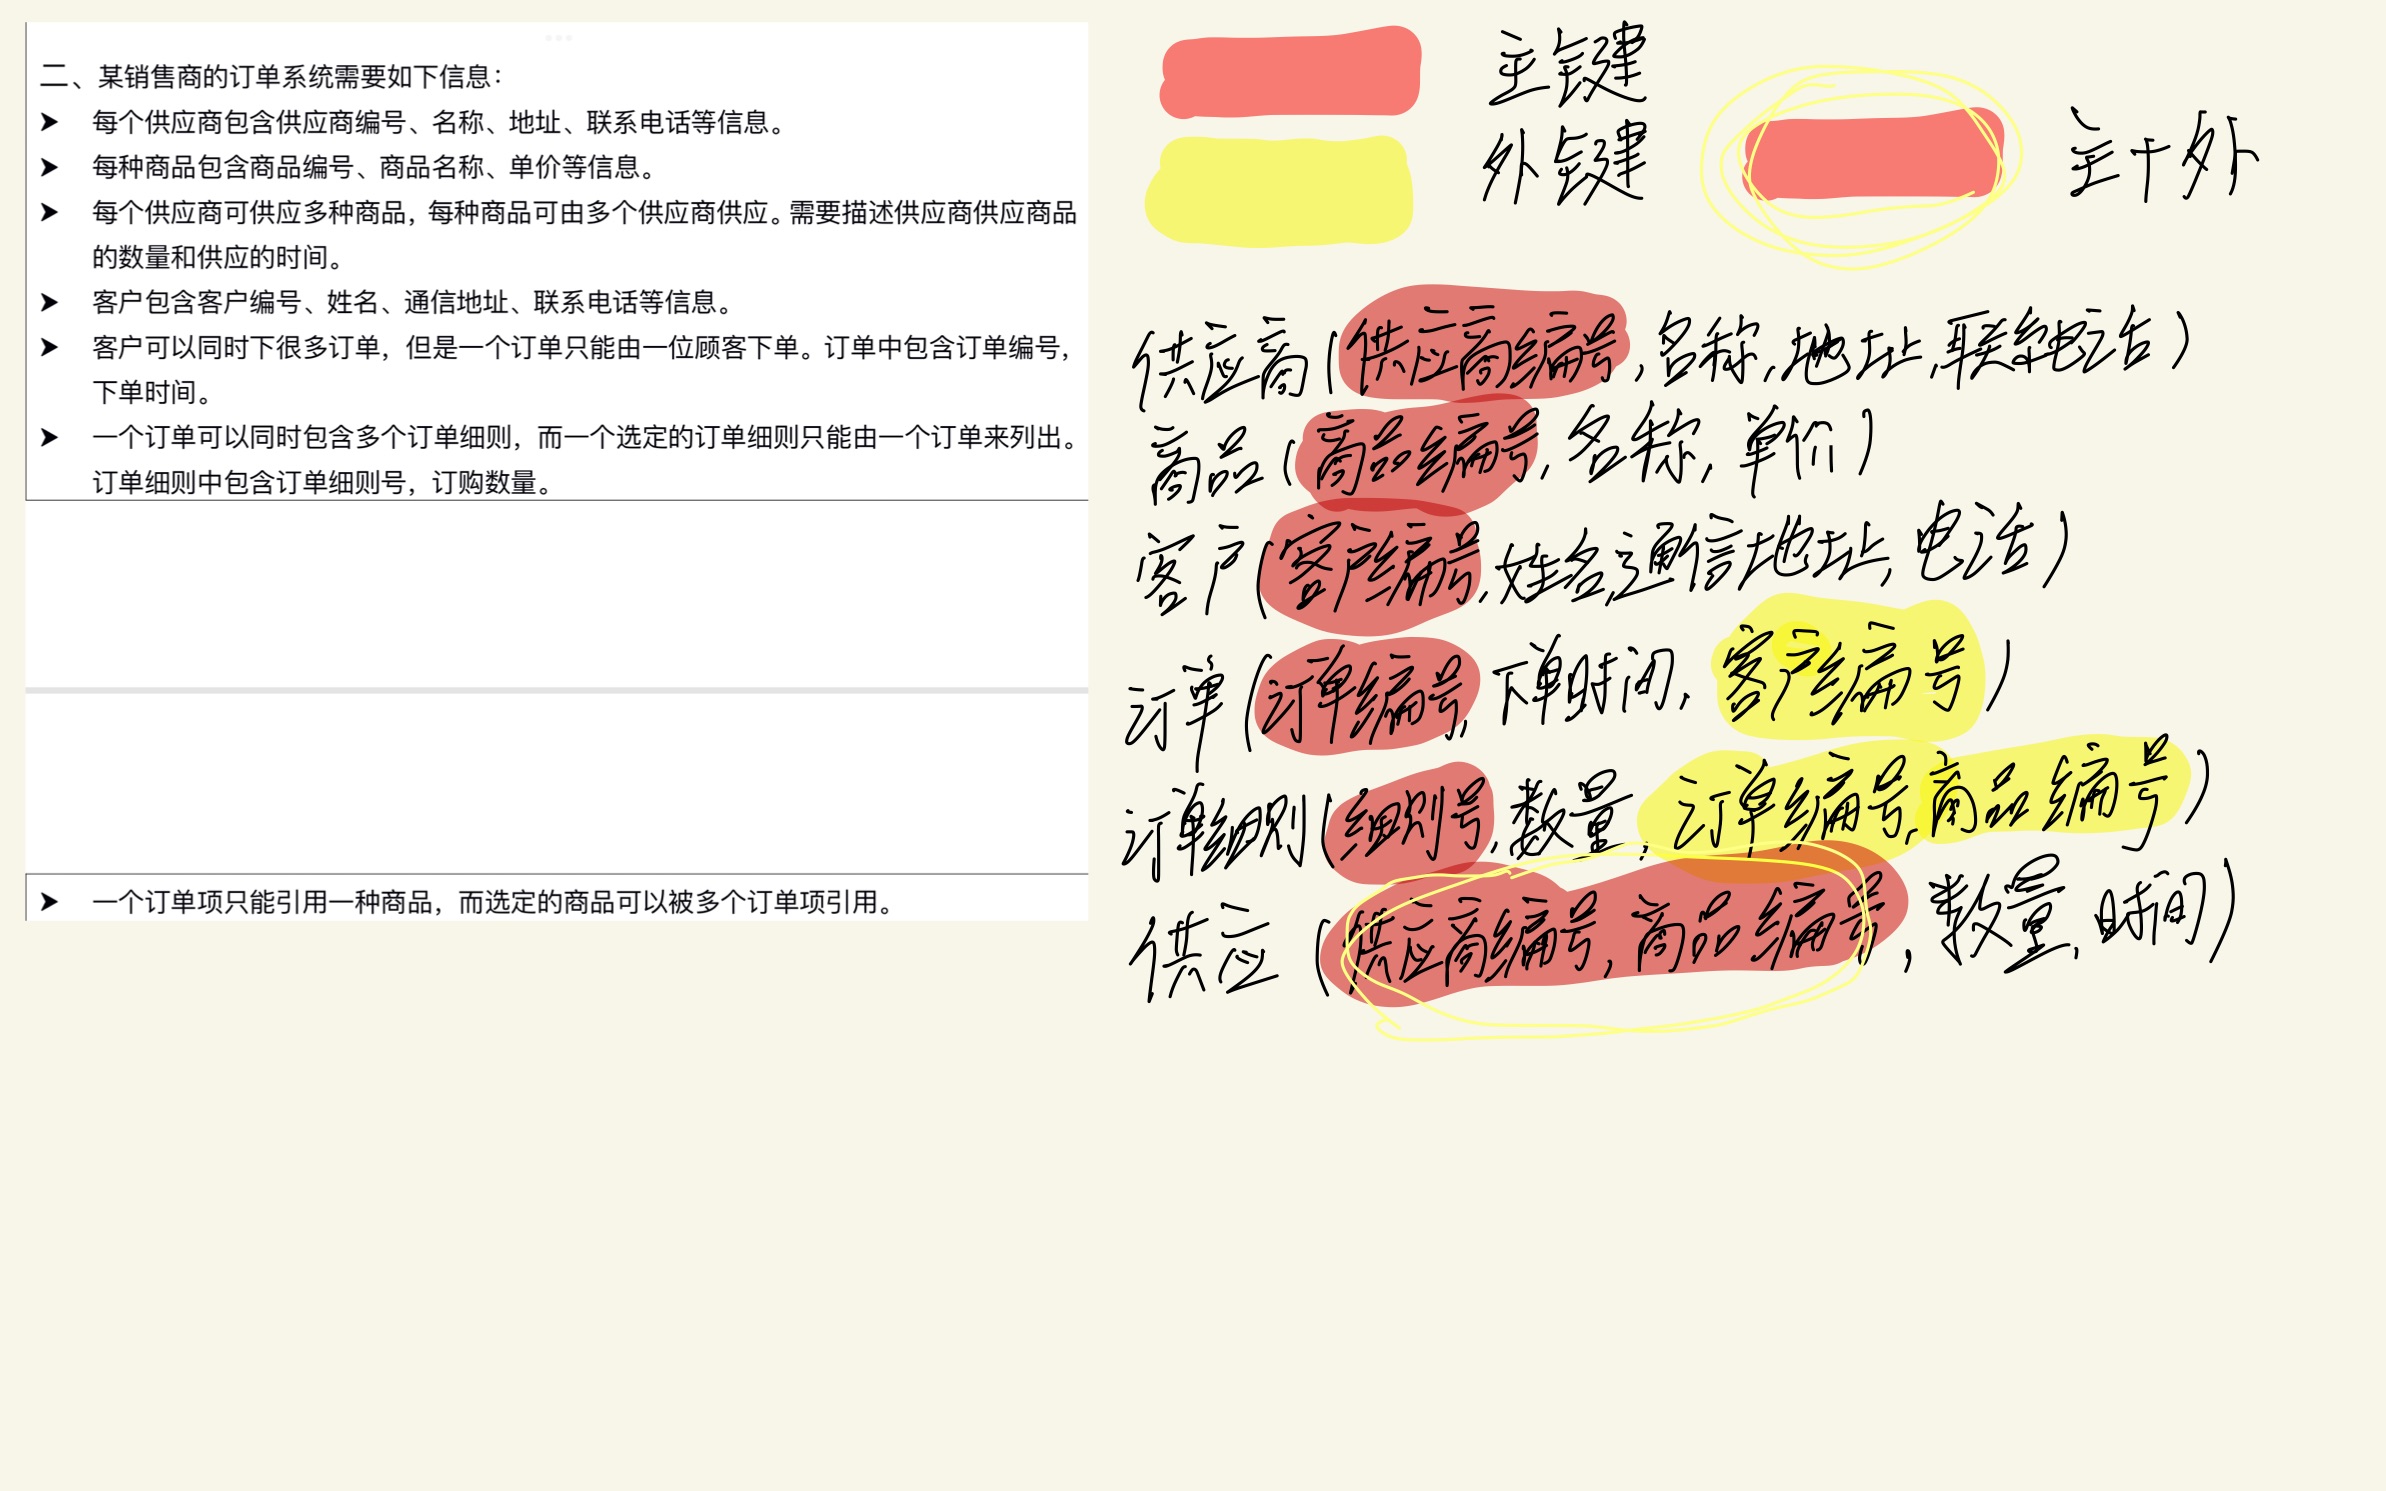 二、某销售商的订单系统需要如下信息：
➤ 每个供应商包含供应商编号、名称、地址、联系电话等信息。
➤ 每种商品包含商品编号、商品名称、单价等信息。
➤ 每个供应商可供应多种商品，每种商品可由多个供应商供应。需要描述供应商供应商品
的数量和供应的时间。
➤ 客户包含客户编号、姓名、通信地址、联系电话等信息。
➤ 客户可以同时下很多订单，但是一个订单只能由一位顾客下单。订单中包含订单编号，
下单时间。
➤ 一个订单可以同时包含多个订单细则，而一个选定的订单细则只能由一个订单来列出。
订单细则中包含订单细则号，订购数量。
➤ 一个订单项只能引用一种商品，而选定的商品可以被多个订单项引用。
主键
外键
主+外
供应商(供应商编号,名称,地址,联系电话)
商品(商品编号,名称,单价)
客户(客户编号,姓名,通信地址,电话)
订单(订单编号,下单时间,客户编号)
订单细则(细则号,数量,订单编号,商品编号)
供应(供应商编号,商品编号,数量,时间)